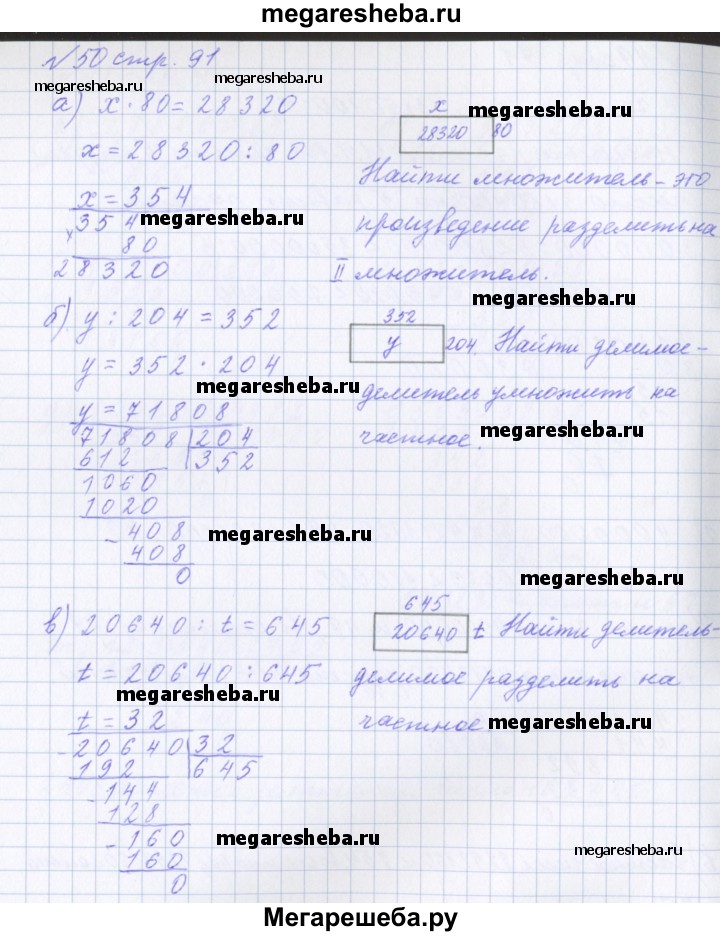 megaresheba.ru
№50 стр. 91
megaresheba.ru megaresheba.ru
а) x · 80 = 28320
x
megaresheba.ru
28320 80
x = 28320 : 80
Найти множитель – это
x = 354
354 megaresheba.ru
произведение разделить на
x 80
28320
II множитель.
megaresheba.ru
б) y : 204 = 352
352
y 204. Найти делимое –
y = 352 · 204
megaresheba.ru
делитель умножить на
y = 71808
частное. megaresheba.ru
71808 204
612 352
1060
1020
- 408 megaresheba.ru
408
0
megaresheba.ru
645
в) 20640 : t = 645
20640 t Найти делитель –
t = 20640 : 645
делимое разделить на
megaresheba.ru
t = 32
частное megaresheba.ru
- 20640 32
192 645
- 144
128
- 160 megaresheba.ru
160
megaresheba.ru
0
Мегарешеба.ру